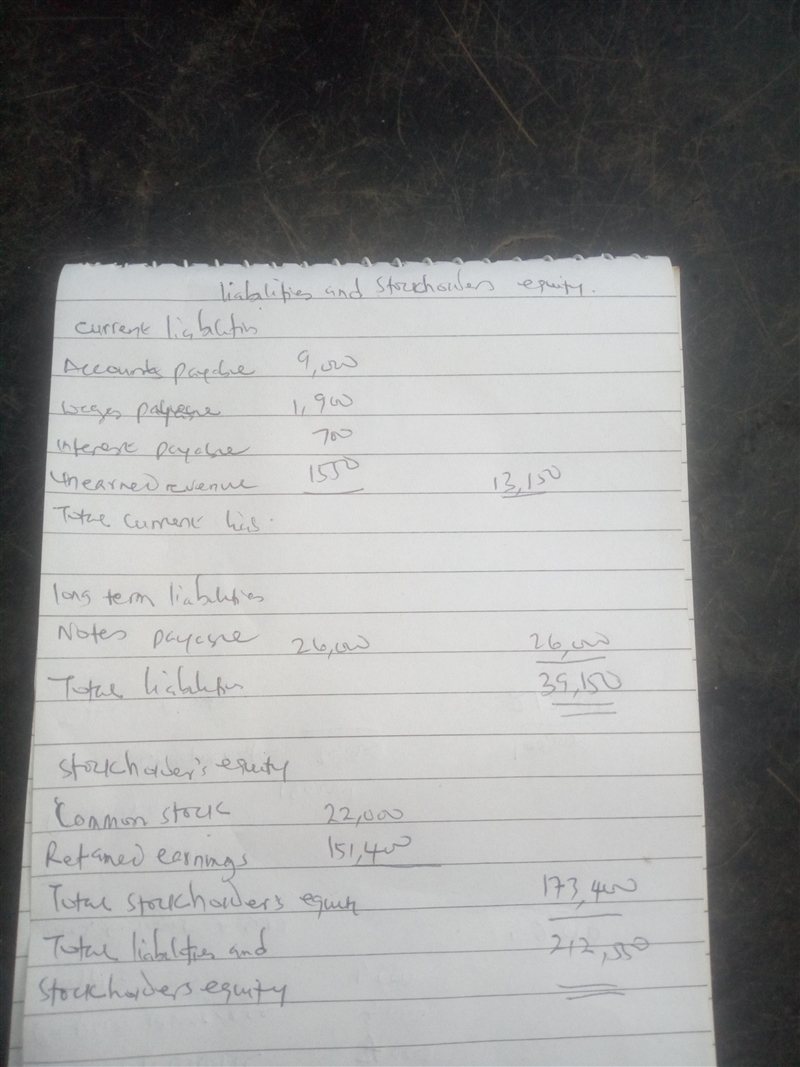 liabilities and Stockholders equity.
Current liabilities
Accounts payable 9,000
Wages payable 1,900
Interest payable 700
Unearned revenue 1550 13,150
Total current lias.
long term liabilities
Notes payable 26,000 26,000
Total liabilities 39,150
Stockholder's equity
Common stock 22,000
Retained earnings 151,400
Total stockholder's equity 173,400
Total liabilities and 212,550
Stockholders equity